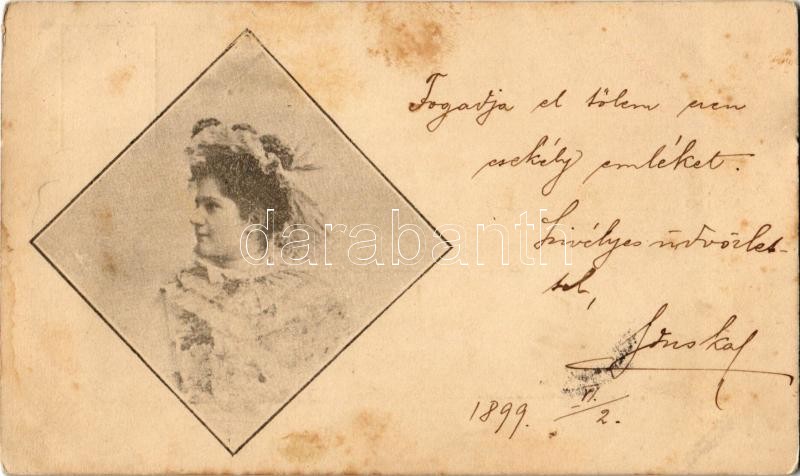 Fogadja el tölem ezen
csekély emléket.
Szivélyes üdvözlet-
tel,
1899. VI/2.
darabanth.com